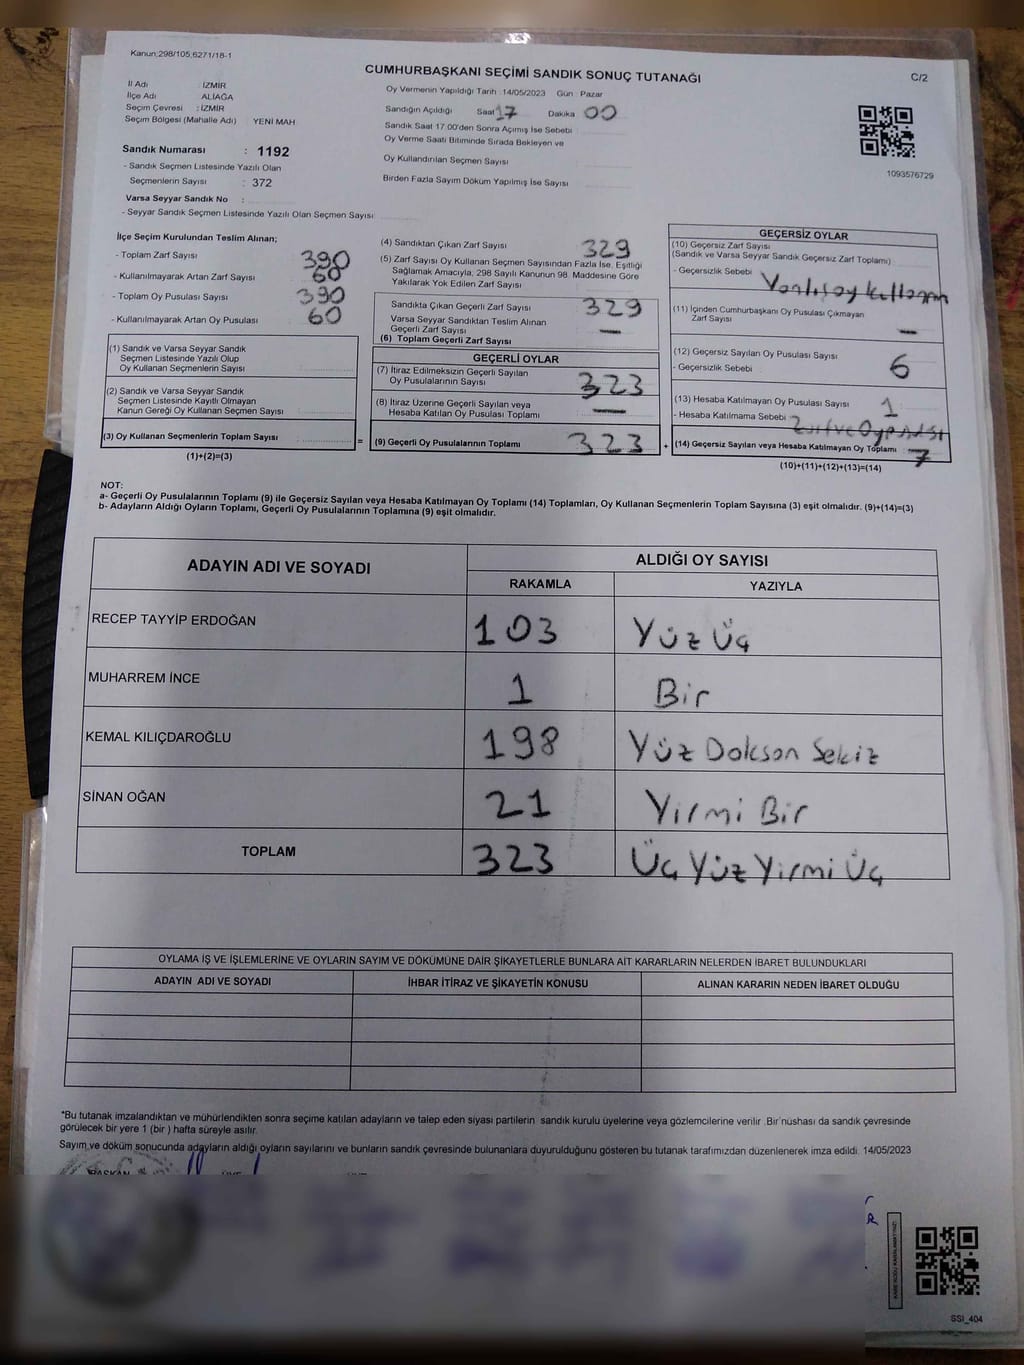 Kanun;298/105,6271/18-1
CUMHURBAŞKANI SEÇİMİ SANDIK SONUÇ TUTANAĞI
C/2
İl Adı : İZMİR
İlçe Adı ALİAĞA
Seçim Çevresi : İZMİR
Seçim Bölgesi (Mahalle Adı) YENİ MAH
Sandık Numarası : 1192
- Sandık Seçmen Listesinde Yazılı Olan
Seçmenlerin Sayısı : 372
Varsa Seyyar Sandık No :
- Seyyar Sandık Seçmen Listesinde Yazılı Olan Seçmen Sayısı
Oy Vermenin Yapıldığı Tarih : 14/05/2023 Gün : Pazar
Sandığın Açıldığı Saat 17 Dakika 00
Sandık Saat 17.00'den Sonra Açımış İse Sebebi
Oy Verme Saati Bitiminde Sırada Bekleyen ve
Oy Kullandırılan Seçmen Sayısı
Birden Fazla Sayım Döküm Yapılmış İse Sayısı
1093576729
İlçe Seçim Kurulundan Teslim Alınan;
- Toplam Zarf Sayısı 390
- Kullanılmayarak Artan Zarf Sayısı 60
- Toplam Oy Pusulası Sayısı 390
- Kullanılmayarak Artan Oy Pusulası 60
(1) Sandık ve Varsa Seyyar Sandık
Seçmen Listesinde Yazılı Olup
Oy Kullanan Seçmenlerin Sayısı
(2) Sandık ve Varsa Seyyar Sandık
Seçmen Listesinde Kayıtlı Olmayan
Kanun Gereği Oy Kullanan Seçmen Sayısı
(3) Oy Kullanan Seçmenlerin Toplam Sayısı =
(1)+(2)=(3)
(4) Sandıktan Çıkan Zarf Sayısı 329
(5) Zarf Sayısı Oy Kullanan Seçmen Sayısından Fazla İse, Eşitliği
Sağlamak Amacıyla, 298 Sayılı Kanunun 98. Maddesine Göre
Yakılarak Yok Edilen Zarf Sayısı
Sandıkta Çıkan Geçerli Zarf Sayısı 329
Varsa Seyyar Sandıktan Teslim Alınan
Geçerli Zarf Sayısı —
(6) Toplam Geçerli Zarf Sayısı
GEÇERLİ OYLAR
(7) İtiraz Edilmeksizin Geçerli Sayılan
Oy Pusulalarının Sayısı 323
(8) İtiraz Üzerine Geçerli Sayılan veya
Hesaba Katılan Oy Pusulası Toplamı —
(9) Geçerli Oy Pusulalarının Toplamı 323 +
GEÇERSİZ OYLAR
(10) Geçersiz Zarf Sayısı
(Sandık ve Varsa Seyyar Sandık Geçersiz Zarf Toplamı)
- Geçersizlik Sebebi
(11) İçinden Cumhurbaşkanı Oy Pusulası Çıkmayan
Zarf Sayısı —
(12) Geçersiz Sayılan Oy Pusulası Sayısı 6
- Geçersizlik Sebebi
(13) Hesaba Katılmayan Oy Pusulası Sayısı 1
- Hesaba Katılmama Sebebi
(14) Geçersiz Sayılan veya Hesaba Katılmayan Oy Toplamı 7
(10)+(11)+(12)+(13)=(14)
NOT:
a- Geçerli Oy Pusulalarının Toplamı (9) ile Geçersiz Sayılan veya Hesaba Katılmayan Oy Toplamı (14) Toplamları, Oy Kullanan Seçmenlerin Toplam Sayısına (3) eşit olmalıdır. (9)+(14)=(3)
b- Adayların Aldığı Oyların Toplamı, Geçerli Oy Pusulalarının Toplamına (9) eşit olmalıdır.
ADAYIN ADI VE SOYADI
ALDIĞI OY SAYISI
RAKAMLA YAZIYLA
RECEP TAYYİP ERDOĞAN 103 Yüz Üç
MUHARREM İNCE 1 Bir
KEMAL KILIÇDAROĞLU 198 Yüz Dokson Sekiz
SİNAN OĞAN 21 Yirmi Bir
TOPLAM 323 Üç Yüz Yirmi Üç
OYLAMA İŞ VE İŞLEMLERİNE VE OYLARIN SAYIM VE DÖKÜMÜNE DAİR ŞİKAYETLERLE BUNLARA AİT KARARLARIN NELERDEN İBARET BULUNDUKLARI
ADAYIN ADI VE SOYADI İHBAR İTİRAZ VE ŞİKAYETİN KONUSU ALINAN KARARIN NEDEN İBARET OLDUĞU
*Bu tutanak imzalandıktan ve mühürlendikten sonra seçime katılan adayların ve talep eden siyasi partilerin sandık kurulu üyelerine veya gözlemcilerine verilir. Bir nüshası da sandık çevresinde
görülecek bir yere 1 (bir ) hafta süreyle asılır.
Sayım ve döküm sonucunda adayların aldığı oyların sayılarını ve bunların sandık çevresinde bulunanlara duyurulduğunu gösteren bu tutanak tarafımızdan düzenlenerek imza edildi. 14/05/2023
BAŞKAN
SSI_404